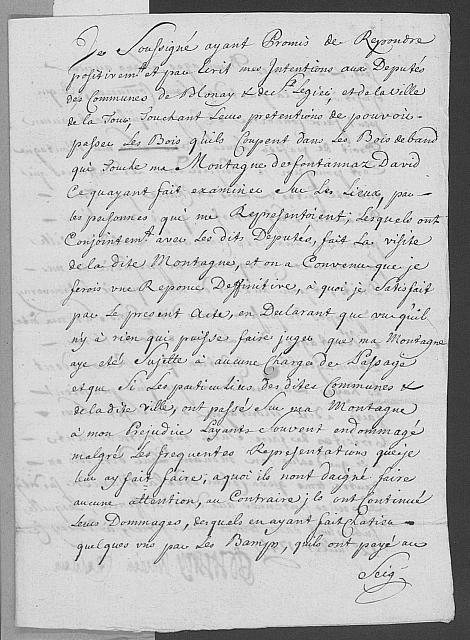 Je Soussigné ayant Promis de Repondre
positivemt et par Ecrit mes Intentions aux Deputés
des Communes de Blonay & de St Legier, et de la Ville
de la Tour, Touchant Leurs pretentions de pouvoir
passer Les Bois qu'ils Coupent dans Les Bois de band
qui Touche ma Montagne des fontannaz David
Ce qu'ayant fait examiner Sur Les Lieux, par
les personnes qui me Representoient; Lesquels ont
Conjointemt avec Les dits Deputés, fait La visite
de la dite Montagne, et on a Convenu que je
ferois une Reponce Deffinitive, à quoi je Satisfait
par Le present Acte, en Declarant que vu qu'il
n'y à rien qui puisse faire juger que ma Montagne
aye eté Sujette à aucune Charge de Passage
et que Si Les particuliers des dites Communes &
de la dite Ville, ont passé Sur ma Montagne
à mon Prejudice L'ayants Souvent endommagé
malgré Les frequentes Representations que je
leur ay fait faire; a quoi ils n'ont daigné faire
aucune attention, au Contraire; ils ont Continué
Leurs Dommages, desquels en ayant fait Chatier
quelques uns par Les Bamps, qu'ils ont payé au
Seig